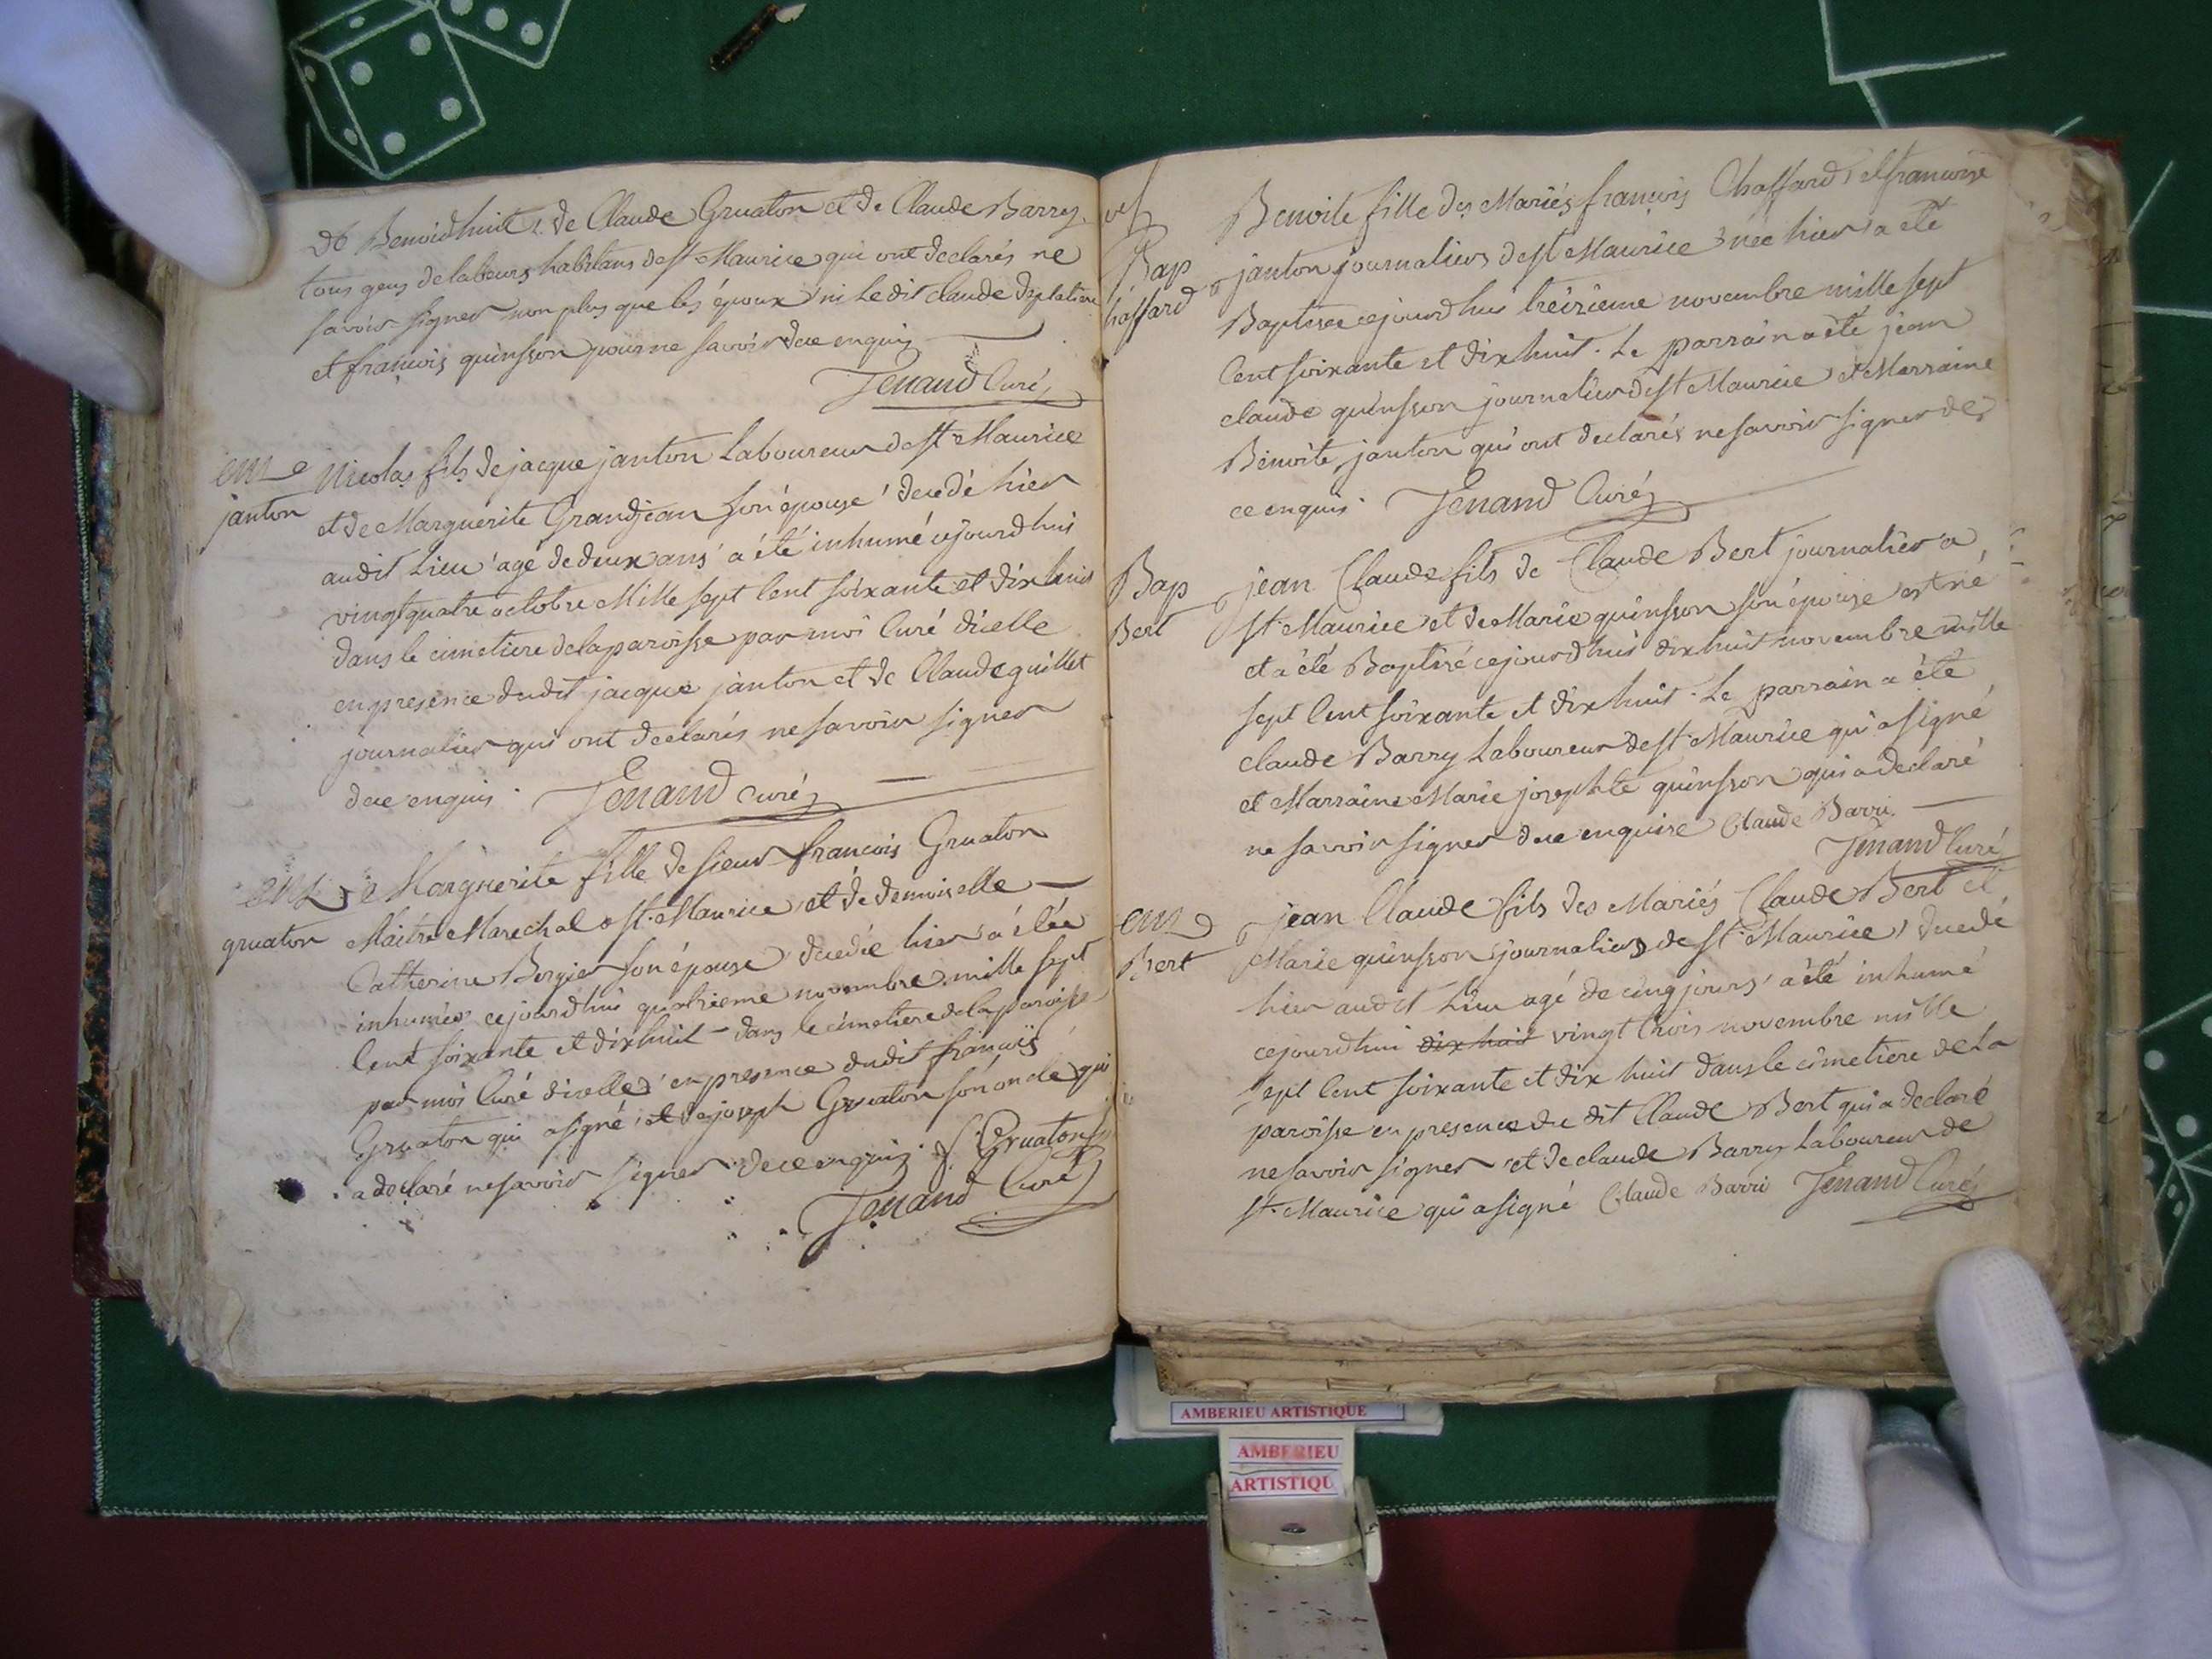 de Benoid huit & de Claude Gruaton et de Claude Barry
tous gens de labeurs habitans de st Maurice qui ont declarés ne
savoir signer non plus que les époux ni le dit claude
et françois quinsson pour ne savoir de ce enquis
Tenand Curé
janton
Nicolas fils de jacque janton Laboureur de st Maurice
et de Marguerite Grandjean son épouse decedé hier
audit Lieu agé de deux ans a été inhumé cejourdhui
vingtquatre octobre Mille sept Cent soixante et dix huit
dans le cimetiere de la paroisse par moi Curé d'icelle
en presence dudit jacque janton et de Claude guillet
journalier qui ont declarés ne savoir signer
de ce enquis. Tenand curé
gruaton
Marguerite fille de sieur françois Gruaton
Maitre Marechal a st. Maurice et de demoiselle
Catherine Borgier son épouse decedée hier a étée
inhumée cejourdhui quatrieme novembre mille sept
Cent soixante et dix huit dans le cimetiere de la paroisse
par moi Curé d'icelle en presence dudit françois
Gruaton qui a signé et de joseph Gruaton son oncle qui
a declaré ne savoir signer de ce enquis. f. Gruaton
Tenand Curé
Bap
Chaffard
Benoite fille des Mariés françois Chaffard et françoise
janton journaliers de st Maurice née hier a eté
Baptisee cejourdhui treizieme novembre mille sept
Cent soixante et dix huit. Le parrain a été jean
claude quinsson journalier de st Maurice et Marraine
Benoite janton qui ont declarés ne savoir signer de
ce enquis. Tenand Curé
Bap
Bert
jean Claude fils de Claude Bert journalier a
st. Maurice et de Marie quinsson son épouse est né
et a été Baptisé cejourdhui dix huit novembre mille
sept Cent soixante et dix huit. Le parrain a été
claude Barry Laboureur de st Maurice qui a signé
et Marraine Marie josephte quinsson qui a declaré
ne savoir signer de ce enquise Claude Barri
Tenand Curé
Bert
jean Claude fils des Mariés Claude Bert et
Marie quinsson journaliers de st. Maurice decedé
hier audit Lieu agé de cinq jours a été inhumé
cejourdhui dix huit vingt trois novembre mille
sept Cent soixante et dix huit dans le cimetiere de La
paroisse en presence du dit Claude Bert qui a declaré
ne savoir signer et de claude Barry Laboureur de
st. Maurice qui a signé Claude Barri Tenand Curé
AMBERIEU ARTISTIQUE
AMBERIEU
ARTISTIQU